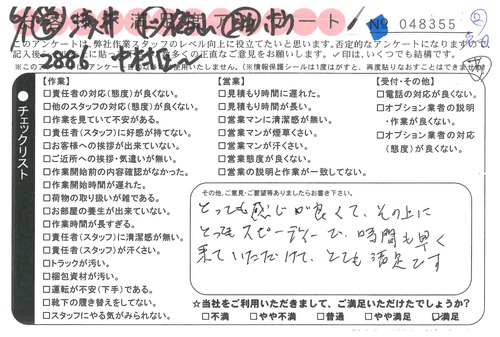 満足度アンケート
№ 048355
このアンケートは、弊社作業スタッフのレベル向上に役立てたいと思います。否定的なアンケートになりますので
2886
チェックリスト
【作業】
□責任者の対応(態度)が良くない。
□他のスタッフの対応(態度)が良くない。
□作業を見ていて不安がある。
□責任者(スタッフ)に好感が持てない。
□お客様への挨拶が出来ていない。
□ご近所への挨拶・気遣いが無い。
□作業開始前の内容確認がなかった。
□作業開始時間が遅れた。
□荷物の取り扱いが雑である。
□お部屋の養生が出来ていない。
□作業時間が長すぎる。
□責任者(スタッフ)に清潔感が無い。
□責任者(スタッフ)が汗くさい。
□トラックが汚い。
□梱包資材が汚い。
□運転が安全(下手)である。
□靴下の履き替えをしてない。
□スタッフにやる気がみられない。
【営業】
□見積もり時間に遅れた。
□見積もり時間が長い。
□営業マンに清潔感が無い。
□営業マンが煙草くさい。
□営業マンが汗くさい。
□営業態度が良くない。
□営業の説明と作業が一致してない。
【受付・その他】
□電話の対応が良くない。
□オプション業者の説明
・作業が良くない。
□オプション業者の対応
(態度)が良くない。
その他、ご意見・ご要望等ありましたらお書き下さい。
とっても感じが良くて、その上に
とってもスピーディーで、時間も早く
来ていただけて、とても満足です
☆当社をご利用いただきまして、ご満足いただけたでしょうか?
□不満 □やや不満 □普通 □やや満足 ☑満足